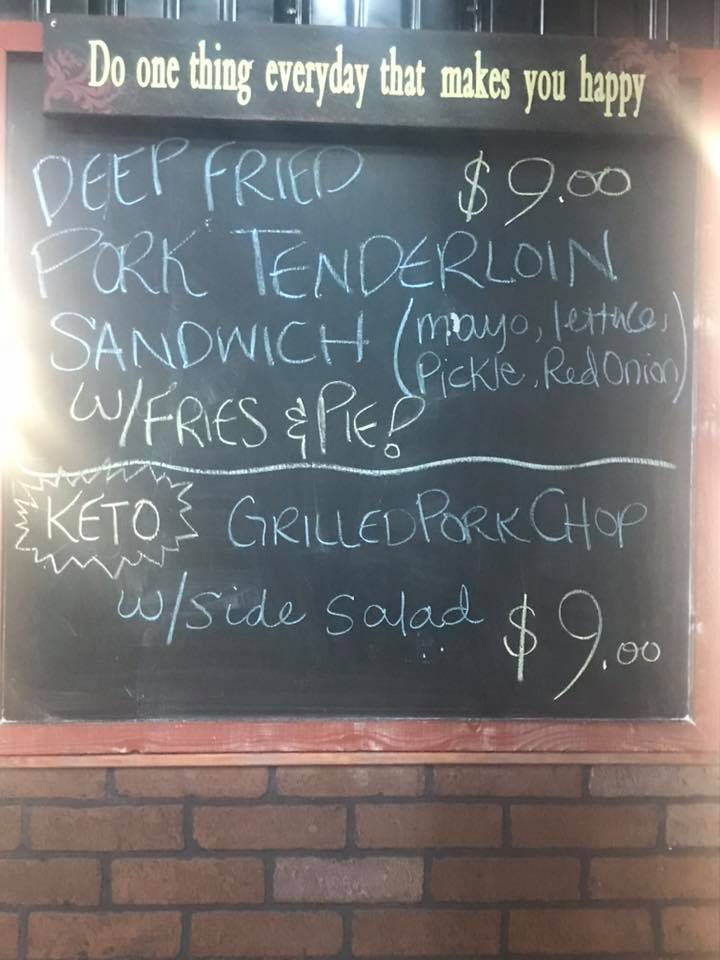 Do one thing everyday that makes you happy
DEEP FRIED $9.00
PORK TENDERLOIN
SANDWICH (mayo, lettuce,
Pickle, Red Onion)
W/FRIES & PIE!
KETO GRILLED PORK CHOP
w/side salad $9.00